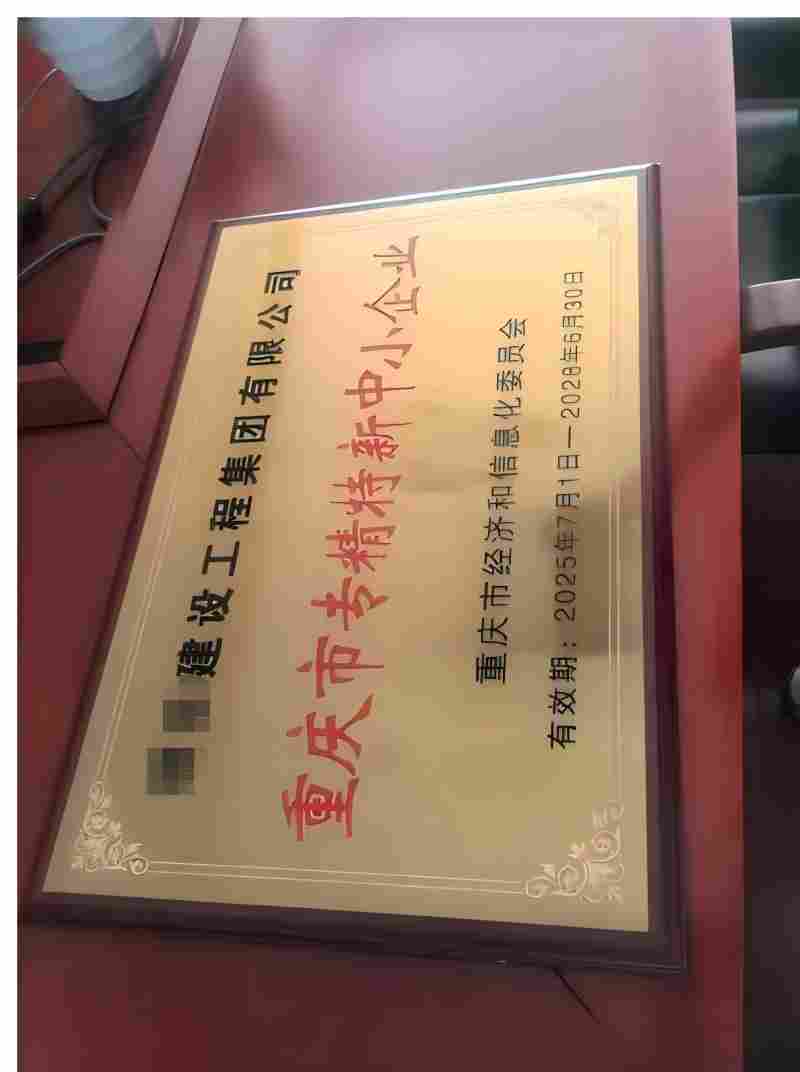 建设工程集团有限公司
重庆市专精特新中小企业
重庆市经济和信息化委员会
有效期：2025年7月1日—2028年6月30日